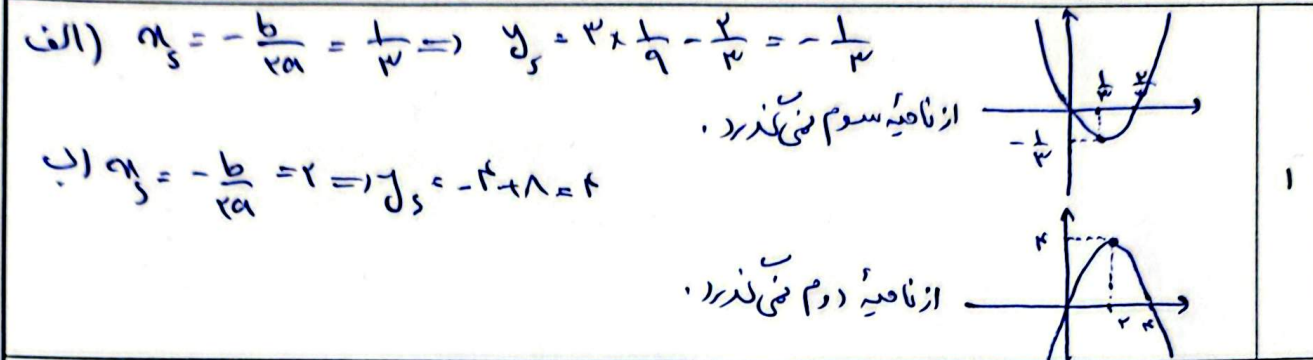 الف) x_s = -b/۲a = ۱/۳ => y_s = ۳×۱/۹ - ۲/۳ = -۱/۳
از ناحیهٔ سوم نمی‌گذرد.
۱/۳
۲/۳
-۱/۳
ب) x_s = -b/۲a = ۲ => y_s = -۴+۸ = ۴
۱
از ناحیهٔ دوم نمی‌گذرد.
۴
۲ ۴